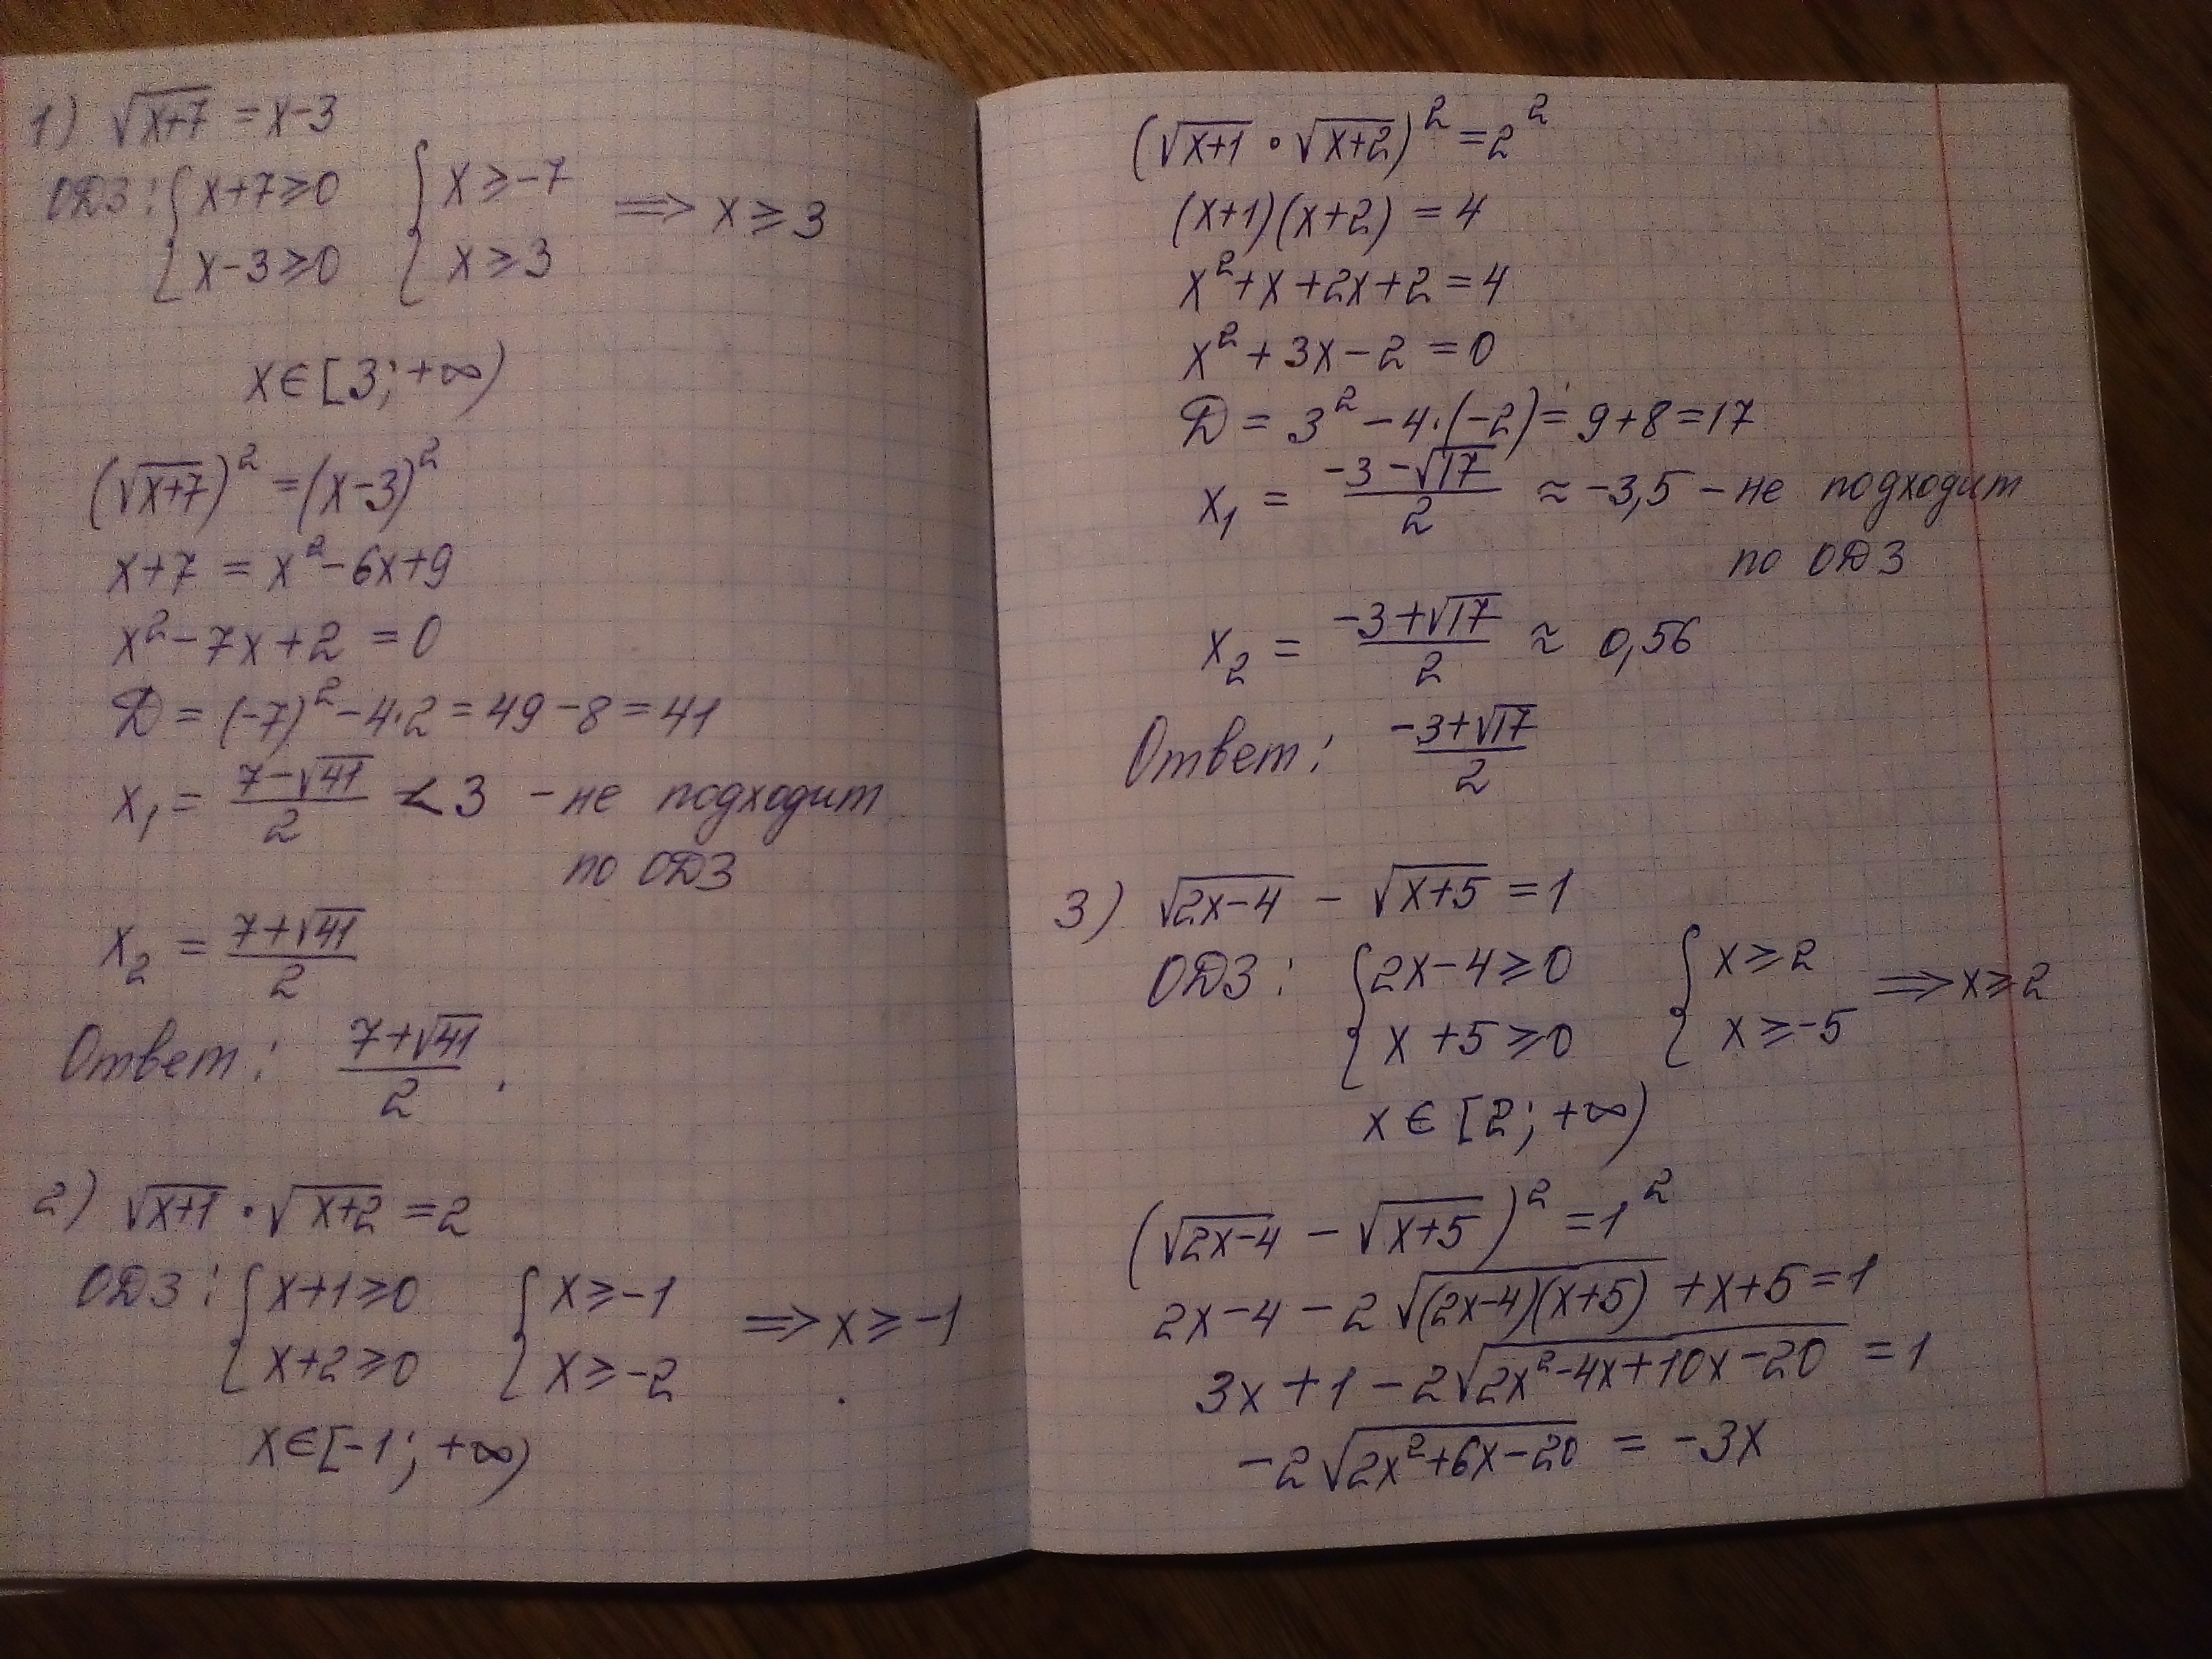 1) √(x+7) = x-3
ОДЗ: { x+7≥0 { x≥-7 ⟹ x≥3
{ x-3≥0 { x≥3
x∈[3; +∞)
(√(x+7))² = (x-3)²
x+7 = x²-6x+9
x²-7x+2 = 0
D = (-7)²-4·2 = 49-8 = 41
x₁ = (7-√41)/2 < 3 - не подходит
по ОДЗ
x₂ = (7+√41)/2
Ответ: (7+√41)/2.
2) √(x+1) · √(x+2) = 2
ОДЗ: { x+1≥0 { x≥-1 ⟹ x≥-1
{ x+2≥0 { x≥-2
x∈[-1; +∞)
(√(x+1) · √(x+2))² = 2²
(x+1)(x+2) = 4
x²+x+2x+2 = 4
x²+3x-2 = 0
D = 3²-4·(-2) = 9+8 = 17
x₁ = (-3-√17)/2 ≈ -3,5 - не подходит
по ОДЗ
x₂ = (-3+√17)/2 ≈ 0,56
Ответ: (-3+√17)/2
3) √(2x-4) - √(x+5) = 1
ОДЗ: { 2x-4≥0 { x≥2 ⟹ x≥2
{ x+5≥0 { x≥-5
x∈[2; +∞)
(√(2x-4) - √(x+5))² = 1²
2x-4-2√((2x-4)(x+5)) +x+5=1
3x+1-2√(2x²-4x+10x-20) = 1
-2√(2x²+6x-20) = -3x